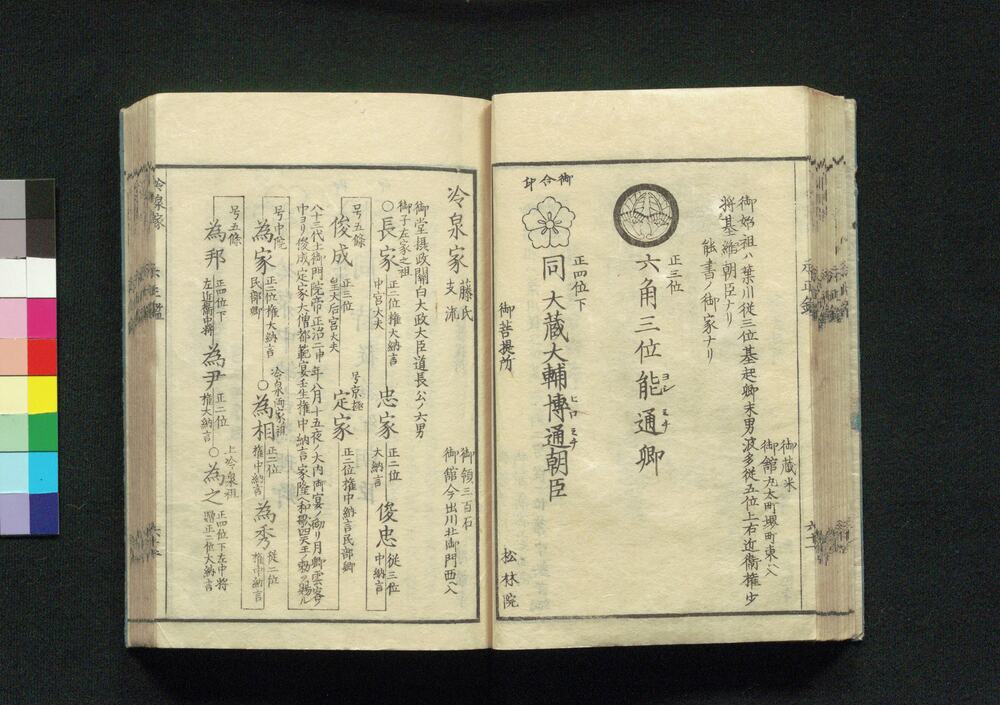 御蔵米
御館丸太町堺町東ヘ入
御始祖ハ葉川従三位基起卿末男波多従五位上右近衛権少
将基維朝臣ナリ
能書ノ御家ナリ
正三位
六角三位能通卿
ヨシ ミチ
御合印
正四位下
同 大蔵大輔博通朝臣
ヒロ ミチ
御菩提所
松林院
冷泉家
藤氏
支流
御領三百石
御館今出川北御門西ヘ入
御堂摂政関白大政大臣道長公ノ六男
御子左家之祖
○長家
正二位権大納言
中宮大夫
忠家
正二位
大納言
俊忠
従三位
中納言
号五條
俊成
正三位
皇大后宮大夫
号京極
定家
正二位権中納言民部卿
八十三代土御門院帝正治二申年八月十五夜大内両宴ノ御リ月卿雲客ノ
中ヨリ俊成定家大僧都範宴壬生権中納言家隆ヘ和歌四天王ノ勅ヲ賜ル
号中院
為家
正二位権大納言
民部卿
冷泉両家祖
○為相
正二位
権中納言
為秀
従二位
権中納言
号五條
為邦
正四位下
左近衛中将
為尹
正二位
権大納言
上冷泉祖
○為之
正四位下左中将
贈正二位大納言
冷泉家